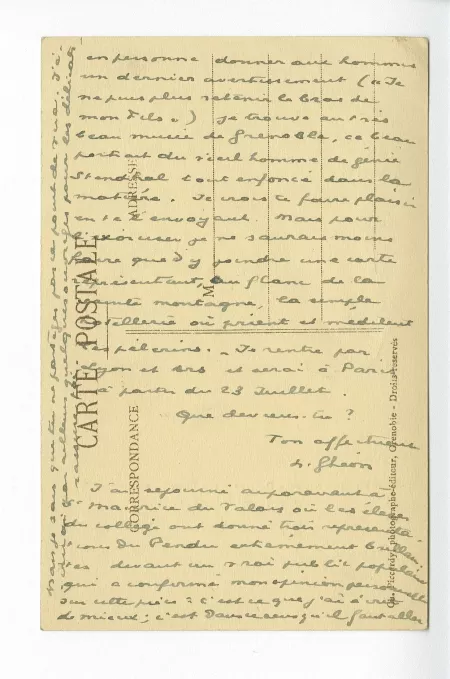 en personne donner aux hommes
un dernier avertissement ("Je
ne puis plus retenir le bras de
mon Fils") je trouve au très
beau musée de Grenoble, ce beau
portrait du vieil homme de génie
Stendhal tout enfoncé dans la
matière. Je crois te faire plaisir
en te l'envoyant. Mais pour
l'exorciser je ne saurais moins
faire que d'y joindre une carte
représentant, au flanc de la
sainte montagne, la simple
hôtellerie où prient et méditent
les pèlerins. - Je rentre par
Lyon et serai à Paris
à partir du 23 Juillet.
Que deviens-tu ?
Ton affectueux
H. Ghéon
J'ai séjourné auparavant à
St Maurice du Valais où les élèves
du collège ont donné trois représenta
tions du Pendu extrêmement brillan
tes devant un vrai public populaire
qui a confirmé mon opinion personnelle
sur cette pièce : c'est ce que j'ai écrit
de mieux ; c'est dans ce sens qu'il faut aller
Mais je sais que tu ne partages pas ce point de vue. J'é-
ailleurs quelques ouvrages pour les délicats
CARTE POSTALE
CORRESPONDANCE
ADRESSE
M
photographe-éditeur, Grenoble - Droits réservés